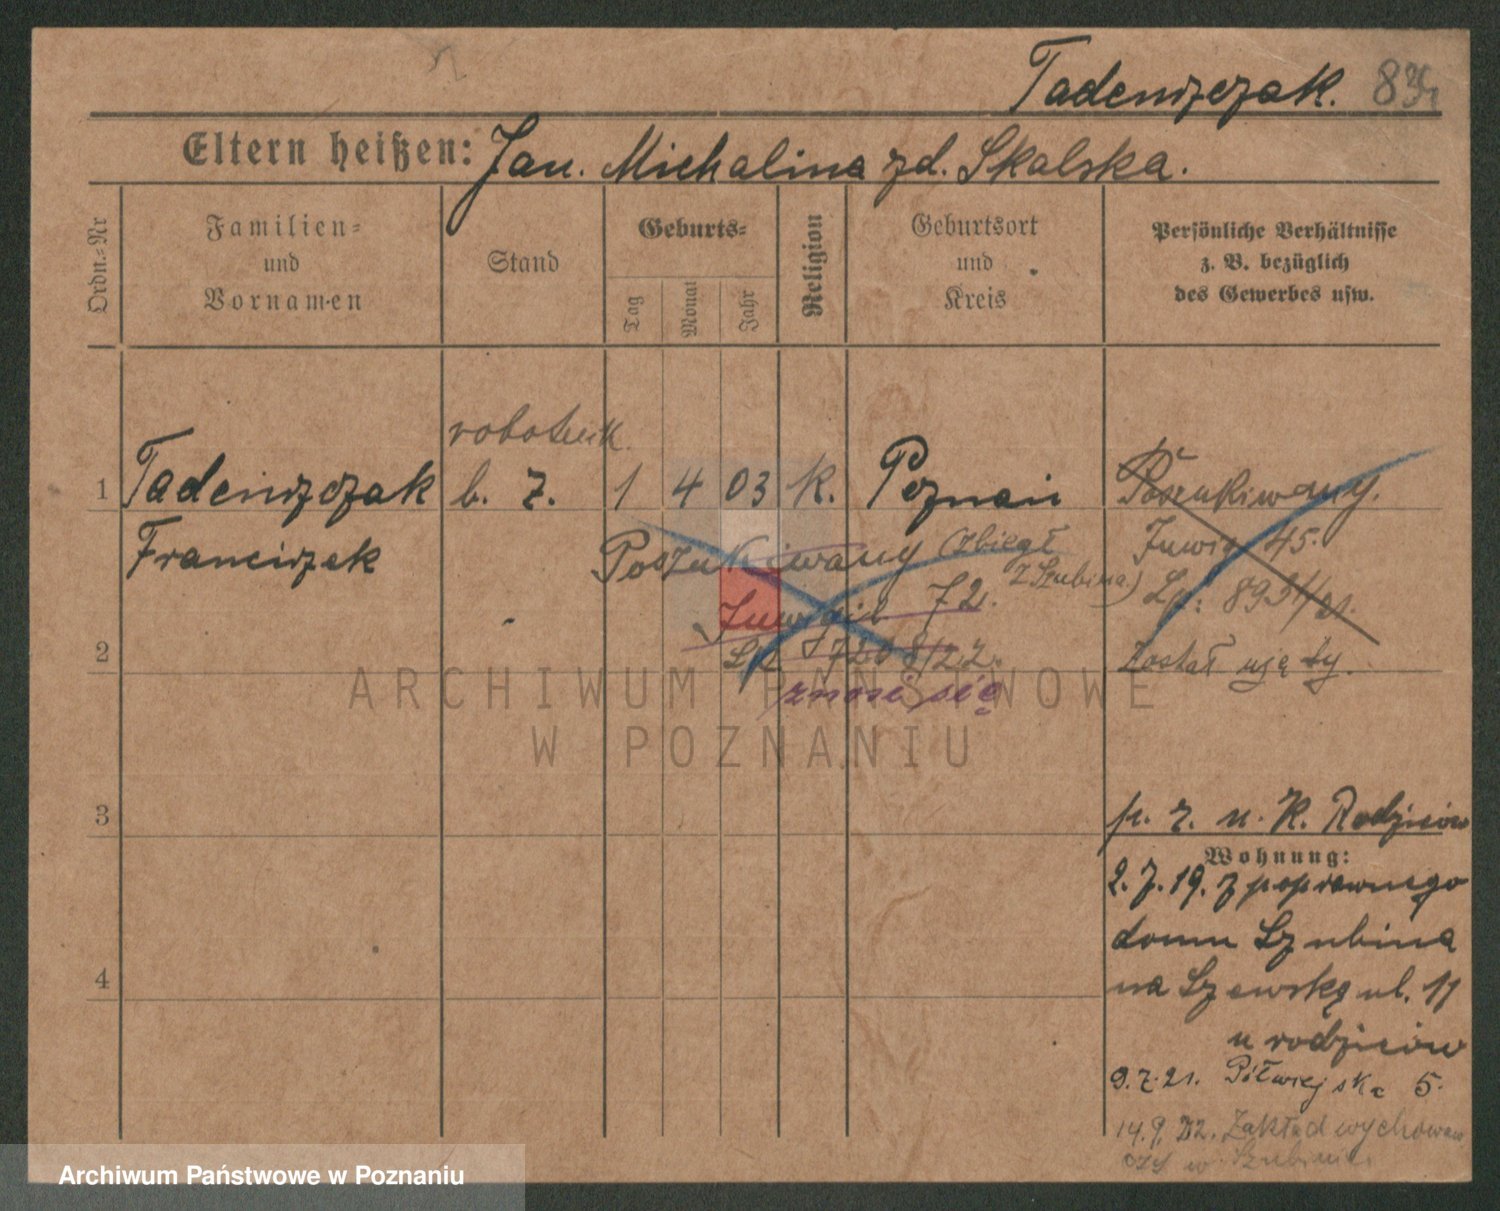 Tadeuszczak.
Eltern heißen: Jan. Michalina zd. Skalska.
Ordn.-Nr
Familien- und Vornamen
Stand
Geburts-
Tag
Monat
Jahr
Religion
Geburtsort und Kreis
Persönliche Verhältnisse z. B. bezüglich des Gewerbes usw.
robotnik.
1 Tadeuszczak b. z. 1 4 03 K. Poznań Poszukiwany.
Franciszek
Poszukiwany (zbiegł
z Szubina)
Inwigil 72.
Lp. 7208/22.
znosi się
45.
Lp: 8931/21.
2
Został ujęty.
ARCHIWUM PAŃSTWOWE
W POZNANIU
3
p. z. n. K. Rodziców
Wohnung:
2.7.19. z poprawnego
domu Szubina
na Szewską ul. 11
u rodziców
4
9.7.21. Półwiejska 5.
14.9.22. Zakład wychowaw
czy w Szubinie.
Archiwum Państwowe w Poznaniu